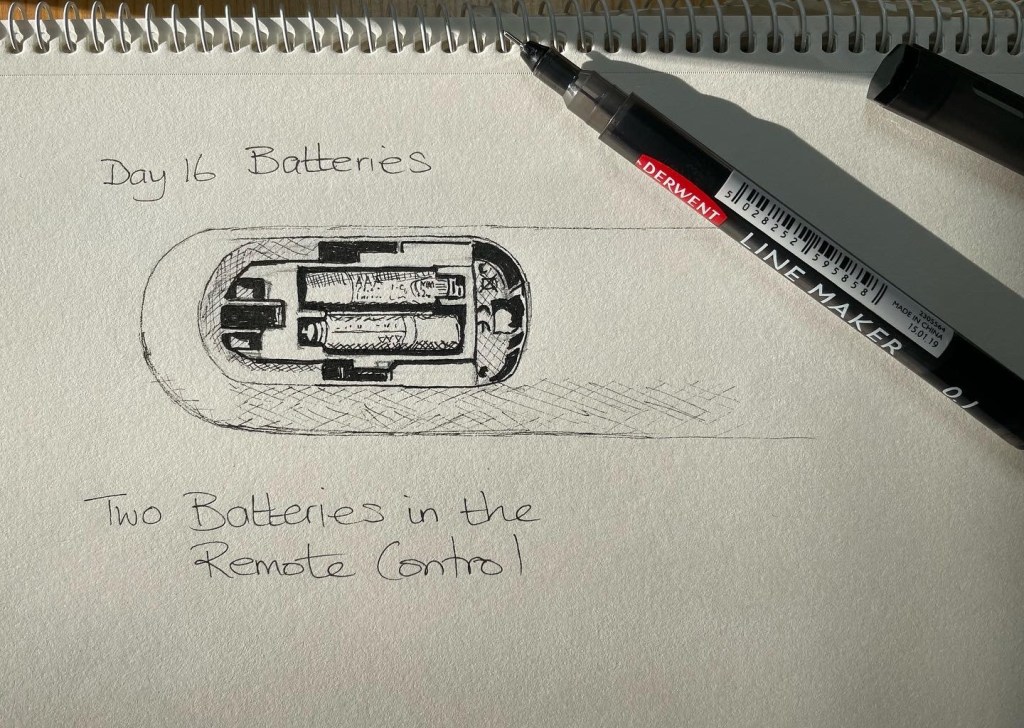 Day 16 Batteries
DERWENT
5 028252 595858
LINE MAKER
2305564
MADE IN CHINA
15.01.19
0.1
AAA
Two Batteries in the
Remote Control